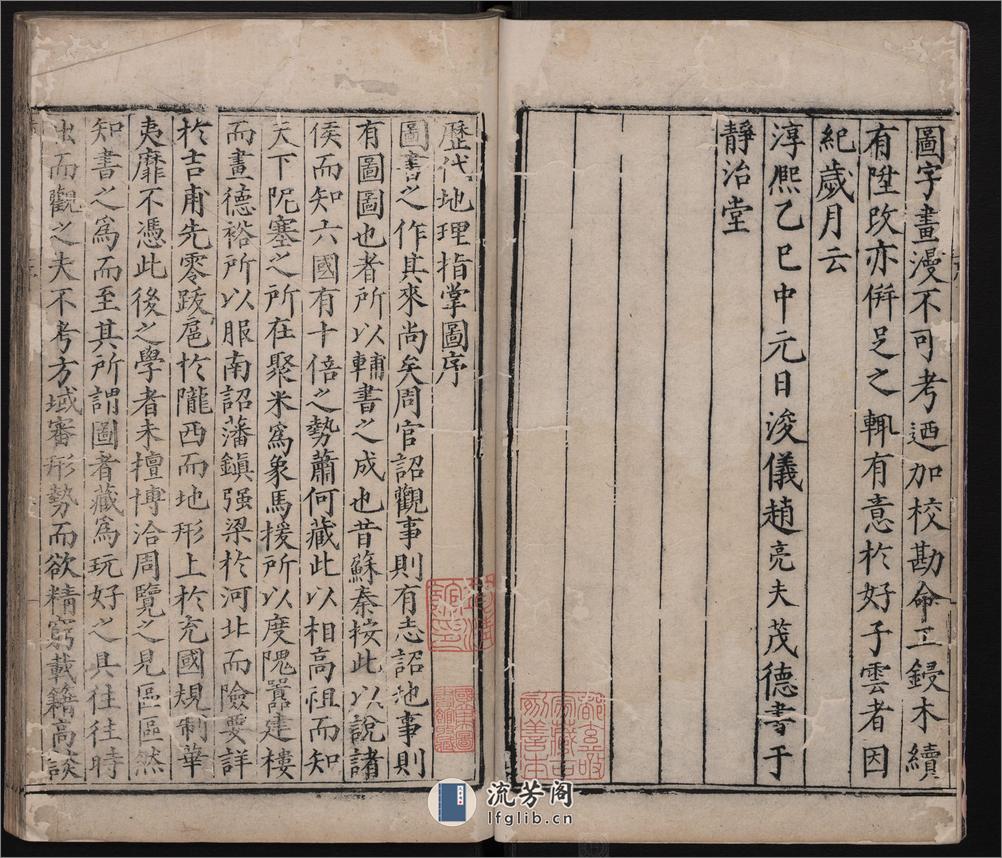 圖字畫漫不可考迺加校勘命工鋟木續
有陞改亦倂足之輒有意於好子雲者因
紀歲月云
淳熈乙巳中元日浚儀趙亮夫茂德書于
靜治堂
歷代地理指掌圖序
圖書之作其來尚矣周官詔觀事則有志詔地事則
有圖圖也者所以輔書之成也昔蘇秦按此以說諸
侯而知六國有十倍之勢蕭何藏此以相高祖而知
天下阨塞之所在聚米爲象馬援所以度隗囂建樓
而畫德裕所以服南詔藩鎮强梁於河北而險要詳
於吉甫先零跋扈於隴西而地形上於充國規制華
夷靡不憑此後之學者未擅博洽周覽之見區區然
知書之爲而至其所謂圖者藏爲玩好之具往往時
出而觀之夫不考方域審形勢而欲精窮載籍高談
流芳阁
lfglib.cn